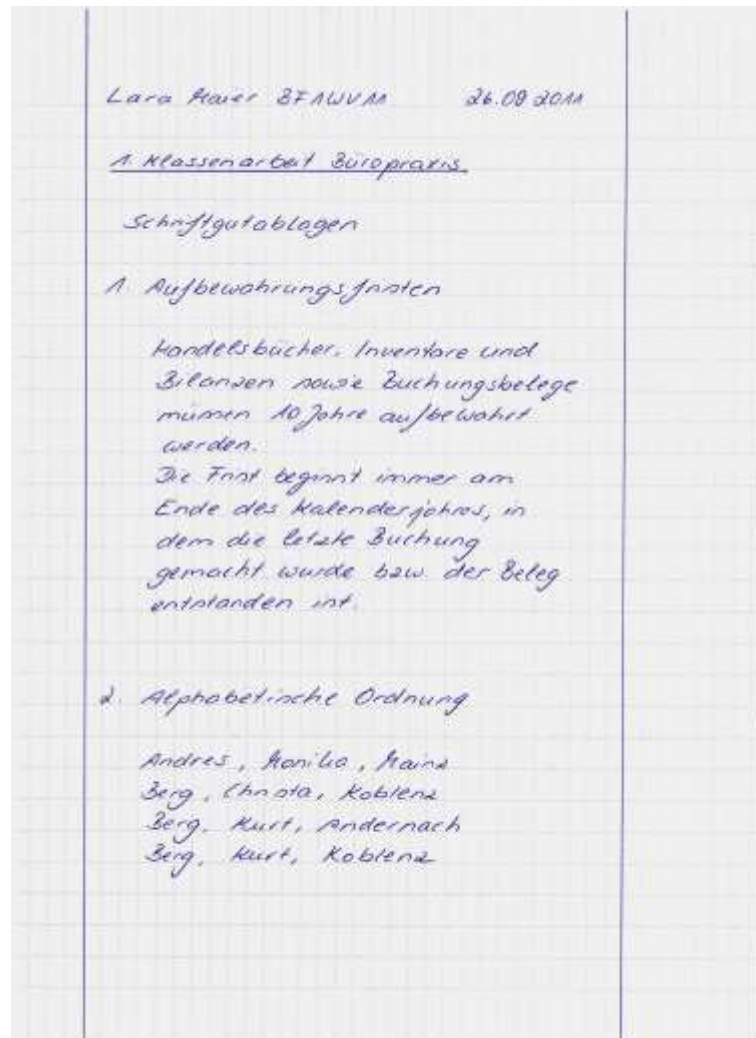 Lara Maier BF1WV11 26.09.2011
1. Klassenarbeit Büropraxis
Schriftgutablagen
1. Aufbewahrungsfristen
Handelsbücher, Inventare und
Bilanzen sowie Buchungsbelege
müssen 10 Jahre aufbewahrt
werden.
Die Frist beginnt immer am
Ende des Kalenderjahres, in
dem die letzte Buchung
gemacht wurde bzw. der Beleg
entstanden ist.
2. Alphabetische Ordnung
Andres, Monika, Mainz
Berg, Christa, Koblenz
Berg, Kurt, Andernach
Berg, Kurt, Koblenz